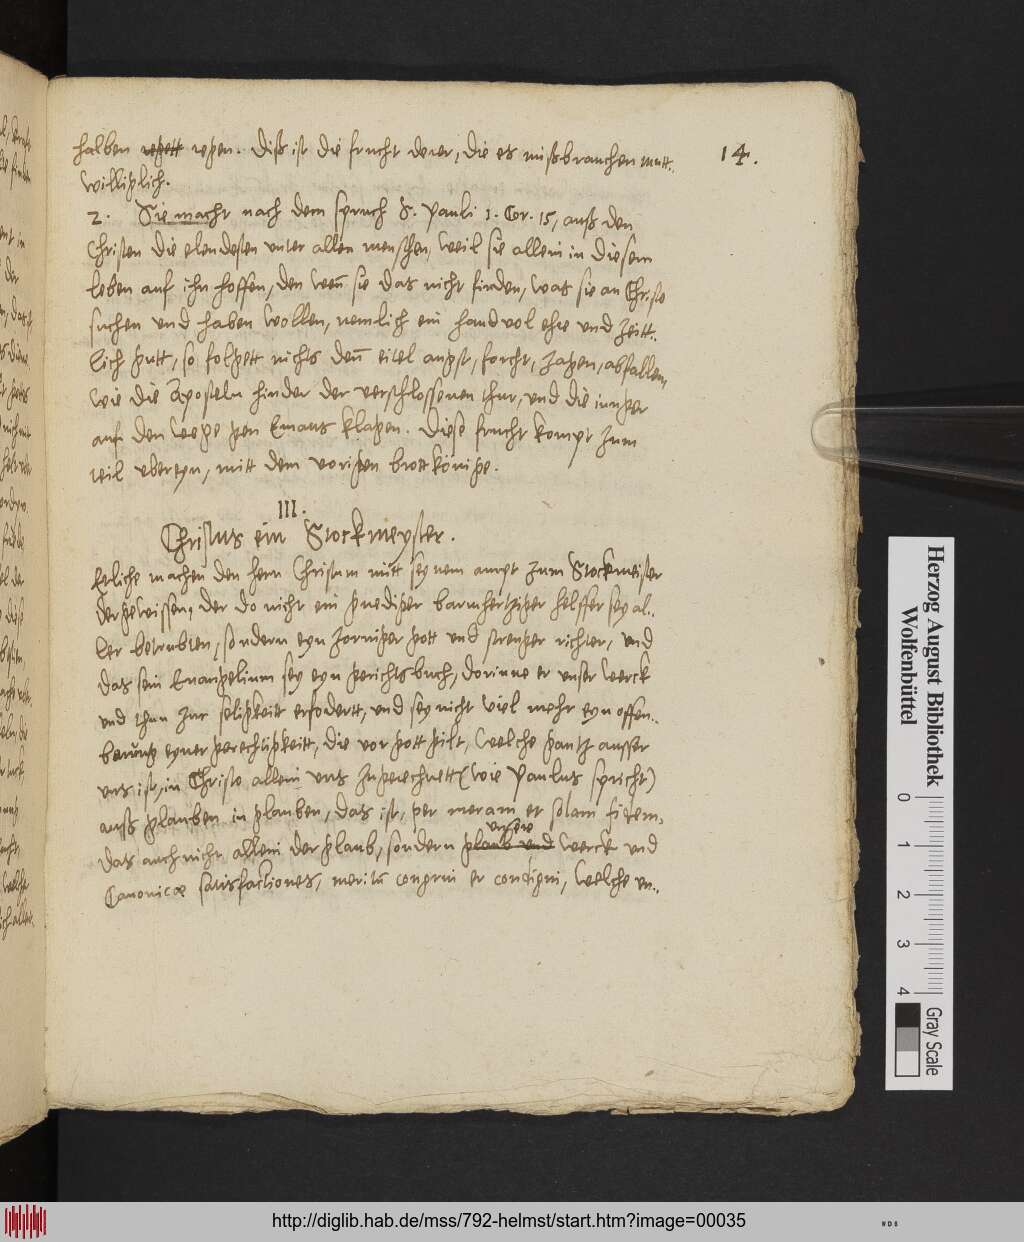 halben regett regen. Diß ist die frucht derer, die es mißbrauchen mutt..
williglich.
14.
2. Sie macht nach dem spruch S. Pauli 1. Cor. 15, auß den
Christen die elendesten unter allen menschen, weil sie allein in diesem
leben auf ihn hoffen, den weñ sie das nicht finden, was sie an Christo
suchen und haben wollen, nemlich ein handvol ehre und Zeitt..
lich gutt, so folgett nichts deñ eitel angst, forcht, zagen, abfallen,
wie die Aposteln hinder der verschlossenen thur, und die iunger
auf dem wege gen Emaus klagen. Diese frucht kompt zum
teil ubereyn, mitt dem vorigen brottkönige.
III.
Christus ein Stockmeyster.
Etliche machen den hern Christum mitt seynem ampt zum Stockmeister
der gewissen, der do nicht ein gnediger barmhertziger helffer sey al..
ler betrubten, sondern eyn zorniger gott und strenger richter, und
das sein Evangelium sey eyn gerichtsbuch, dorinne er unser werck
und thun zur seligkeitt erfodertt, und sey nicht viel mehr eyn offen..
barung eyner gerechtigkeitt, die vor gott gilt, welche gantz ausser
uns ist, in Christo allein uns zugerechnett (wie Paulus spricht)
auß glauben in glauben, das ist, per meram et solam fidem,
das auch nicht allein der glaub, sondern glaub und unsere werck und
Canonicae satisfactiones, meritũ congrui et condigni, welche un..
Herzog August Bibliothek
Wolfenbüttel
0 1 2 3 4
Gray Scale
http://diglib.hab.de/mss/792-helmst/start.htm?image=00035